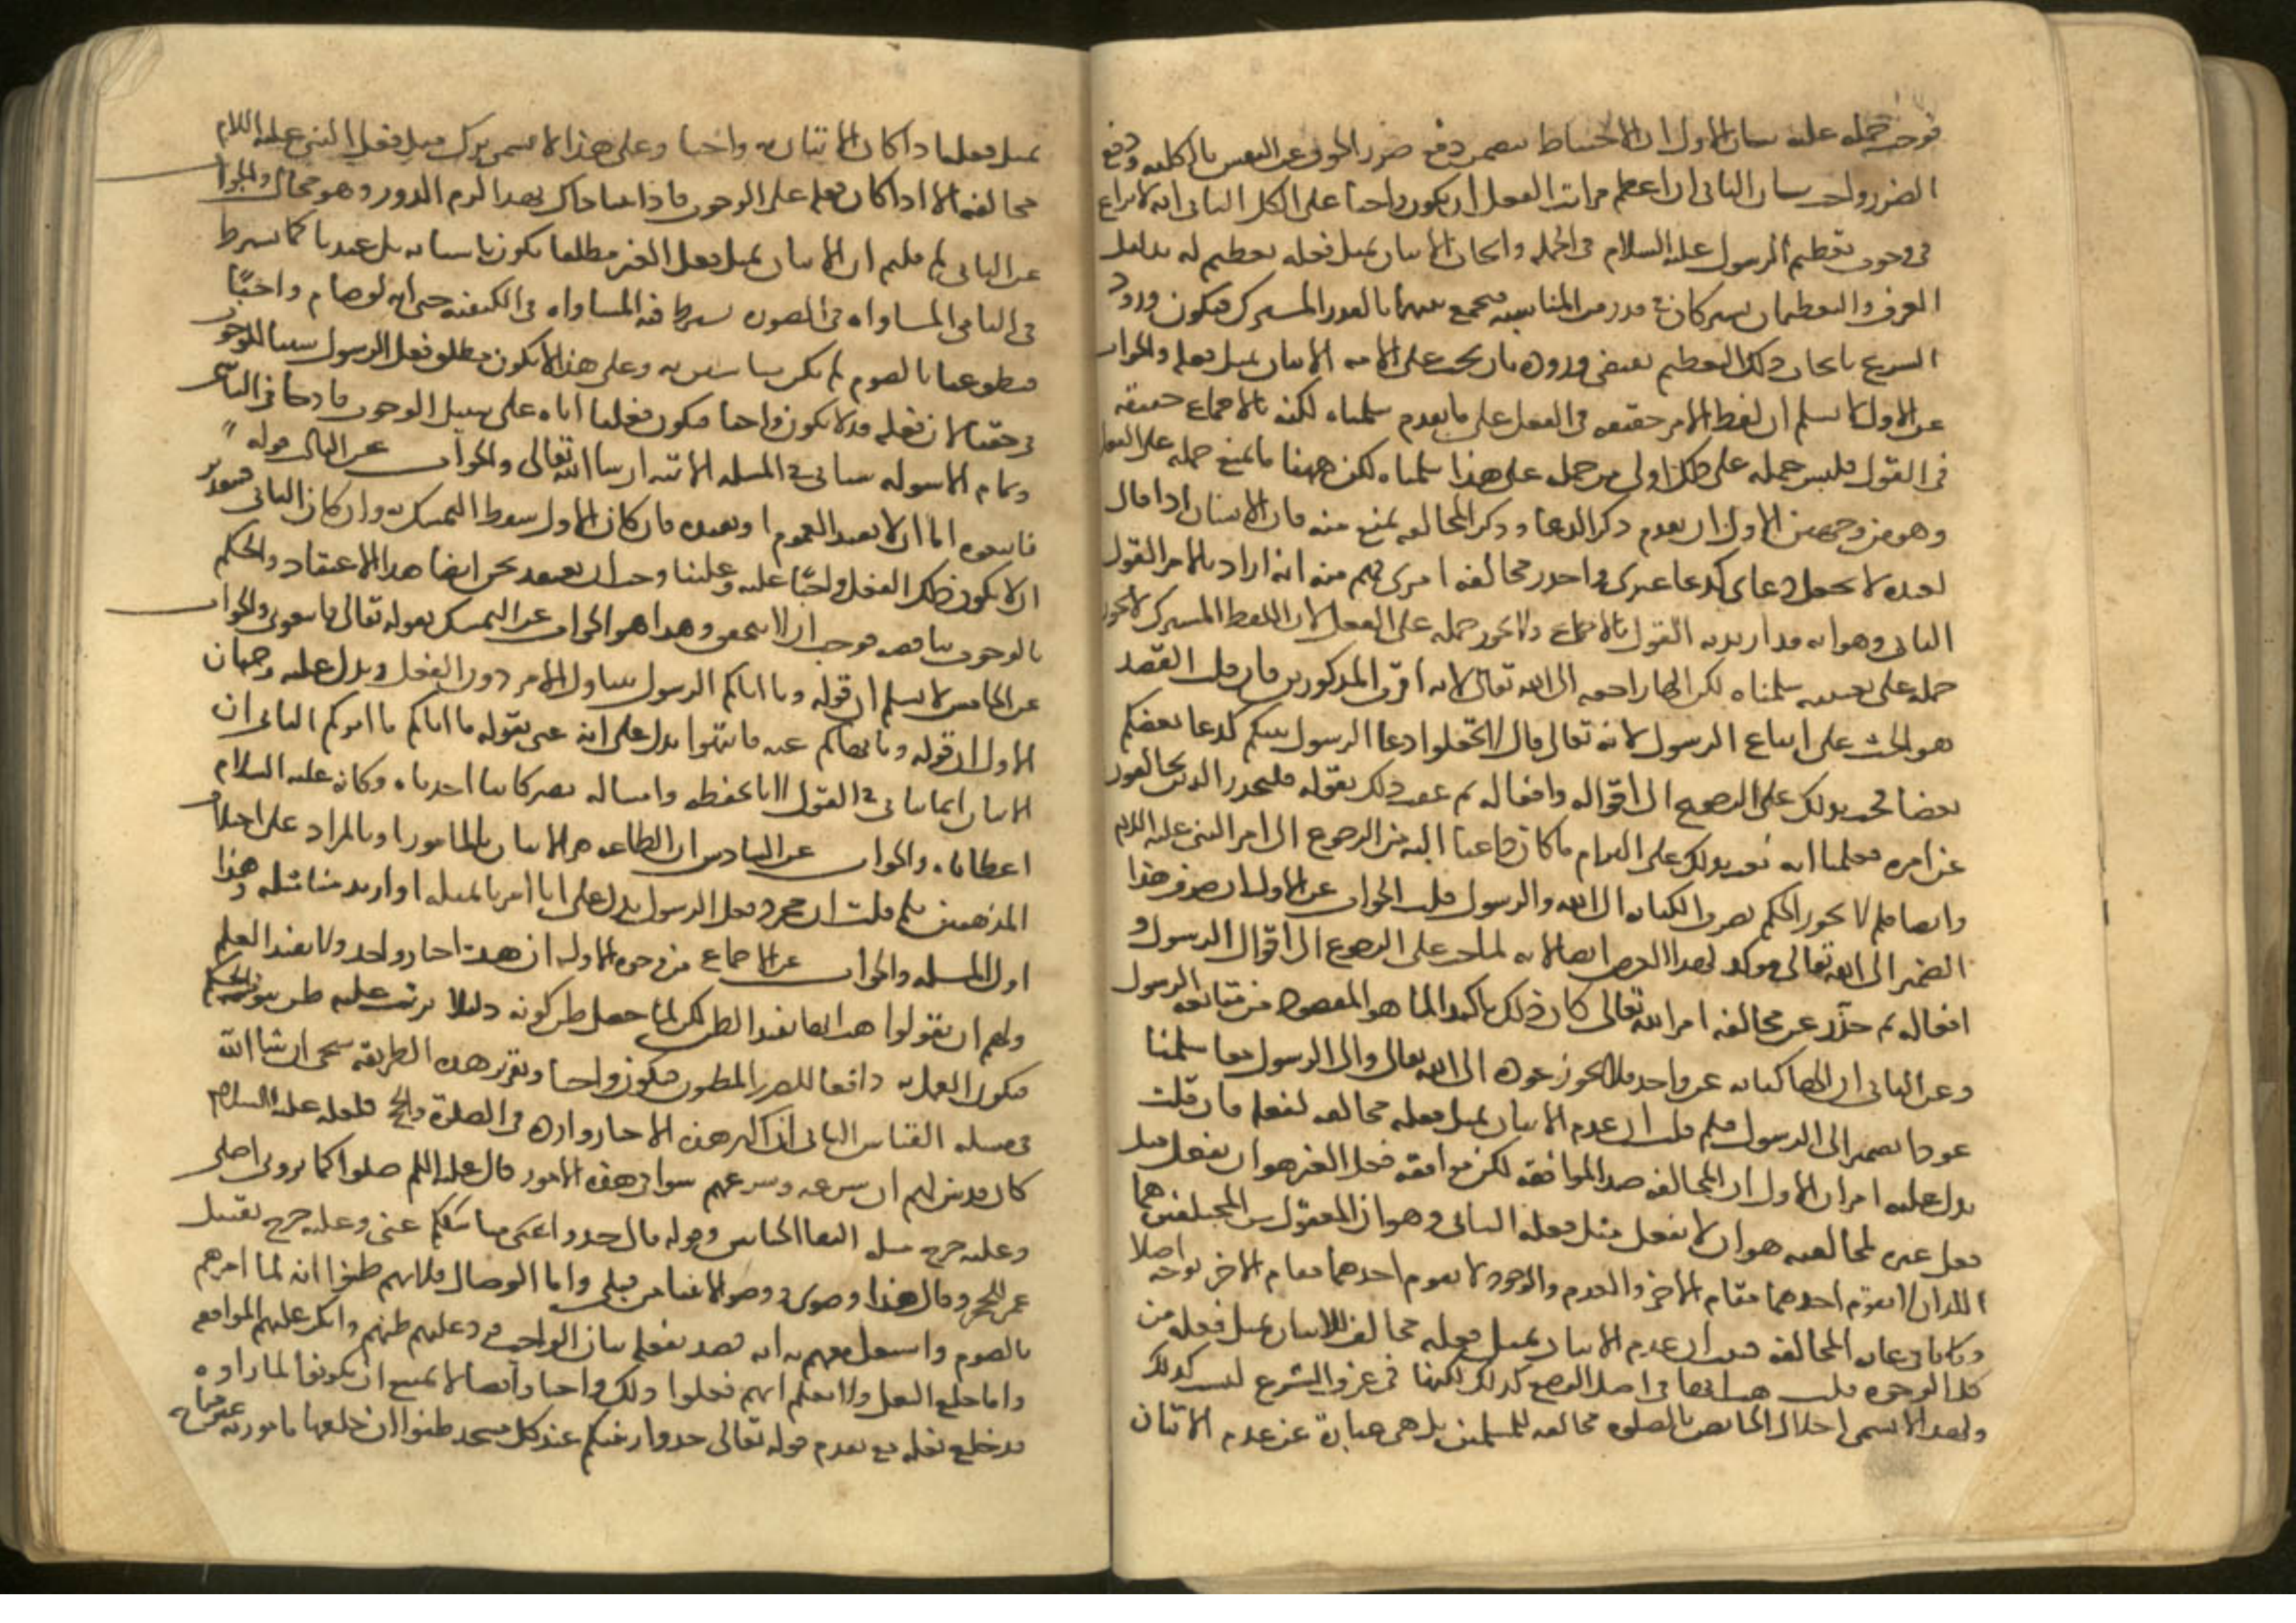 فوجب حمله عليه بيان الاول ان الاحتياط يتضمن دفع ضرر الخوف عن النفس بالكلية ودفع
الضرر واجب بيان الثاني ان اعظم مراتب الفعل ان يكون واجبا على الكل الثاني انه لا نزاع
في وجوب تعظيم الرسول عليه السلام في الجملة وايجاب الاتيان بمثل فعله تعظيم له بدليل
العرف والتعظيمان يشتركان في قدر من المناسبة فيجمع بينهما بالقدر المشترك فيكون ورود
الشرع بايجاب ذلك التعظيم يقتضي وروده بان يجب على الامة الاتيان بمثل فعله والجواب
عن الاول لا نسلم ان لفظ الامر حقيقة في الفعل على ما تقدم سلمناه لكنه بالاجماع حقيقة
في القول فليس حمله على ذلك اولى من حمله على هذا سلمناه لكن ههنا ما يمنع حمله على الفعل
وهو من وجهين الاول ان تقدم ذكر الدعا وذكر المخالفة يمنع منه فان الانسان اذا قال
لعبده لا تجعل دعاي كدعا غيري واحذر مخالفة امري فهم منه انه اراد بالامر القول
الثاني وهو انه قد اريد به القول بالاجماع ولا يجوز حمله على الفعل لان اللفظ المشترك لا يجوز
حمله على معنييه سلمناه لكن الها راجعة الى الله تعالى لانه اقرب المذكورين فان قلت القصد
هو الحث على اتباع الرسول لانه تعالى قال لا تجعلوا دعا الرسول بينكم كدعا بعضكم
بعضا فحث بذلك على الرجوع الى اقواله وافعاله ثم عقب ذلك بقوله فليحذر الذين يخالفون
عن امره فعلمنا انه بعث بذلك على التزام ما كان دعا اليه من الرجوع الى امر النبي عليه السلام
وايضا فلم لا يجوز الحكم بصرف الكناية الى الله والرسول قلت الجواب عن الاول ان صرف هذا
الضمير الى الله تعالى موكد لهذا الغرض ايضا لانه لما حث على الرجوع الى اقوال الرسول و
افعاله ثم حذر عن مخالفة امر الله تعالى كان ذلك تاكيدا لما هو المقصود من متابعة الرسول
وعن الثاني ان الها كناية عن واحد فلا يجوز عوده الى الله تعالى والى الرسول معا سلمنا
عود الضمير الى الرسول فلم قلت ان عدم الاتيان بمثل فعله مخالفة لفعله فان قلت
يدل عليه امران الاول ان المخالفة ضد الموافقة لكن موافقة فعل الغير هو ان يفعل مثل
فعل غيره فمخالفته هو ان لا يفعل مثل فعله الثاني وهو ان المعقول من المختلفين هما
اللذان لا يقوم احدهما مقام الاخر والعدم والوجود لا يقوم احدهما مقام الاخر بوجه اصلا
فكانا في غاية المخالفة فثبت ان عدم الاتيان بمثل فعله مخالف للاتيان بمثل فعله من
كل الوجوه قلت هب انها في اصل الوضع كذلك لكنها في عرف الشرع ليست كذلك
ولهذا لا تسمى اخلال الحايض بالصلوة مخالفة للمسلمين بل هي عبارة عن عدم الاتيان
بمثل فعله اذا كان الاتيان به واجبا وعلى هذا لا يسمى ترك مثل فعل النبي عليه السلام
مخالفة الا اذا كان فعله على الوجوب فاذا اثبتنا ذاك بهذا لزم الدور وهو محال والجواب
عن الثاني لم قلتم ان الاتيان بمثل فعل الغير مطلقا يكون تاسيا به بل عندنا كما يشترط
في التاسي المساواة في الصورة يشترط فيه المساواة في الكيفية حتى انه لو صام واجبا
فتطوعنا بالصوم لم نكن متاسين به وعلى هذا لا يكون مطلق فعل الرسول سببا للوجوب
في حقنا لان فعله قد لا يكون واجبا فيكون فعلنا اياه على سبيل الوجوب قادحا في التاسي
وتمام الاسولة سياتي في المسلة الاتية ان شا الله تعالى والجواب عن الثالث قوله
فاتبعوه اما ان لا يفيد العموم او يفيده فان كان الاول سقط التمسك به وان كان الثاني فبتقدير
ان لا يكون ذلك الفعل واجبا عليه وعلينا وجب ان نعتقد نحن ايضا هذا الاعتقاد والحكم
بالوجوب يناقضه فوجب ان لا يتحقق وهذا هو الجواب عن التمسك بقوله تعالى فاتبعوني والجواب
عن الخامس لا نسلم ان قوله وما اتاكم الرسول يتناول الامر دون الفعل ويدل عليه وجهان
الاول ان قوله وما نهاكم عنه فانتهوا يدل على انه عنى بقوله ما اتاكم ما امركم الثاني ان
الاتيان انما ياتي في القول لانا نحفظه وامتثاله يصير كاننا اخذناه وكانه عليه السلام
اعطاناه والجواب عن السادس ان الطاعة هي الاتيان بالمامور او بالمراد على اختلاف
المذهبين فلم قلت ان مجرد فعل الرسول يدل على انا امرنا بمثله او اريد منا مثله وهذا
اول المسلة والجواب عن الاجماع من وجوه الاول ان هذه اخبار واحد ولا يفيد العلم
ولهم ان يقولوا هب انها تفيد الظن لكن لما حصل ظن كونه دليلا ترتب عليه ظن ثبوت الحكم
فيكون العمل به دافعا للضرر المظنون فيكون واجبا وتقرير هذه الطريقة سيجي ان شا الله
في مسلة القياس الثاني ان اكثر هذه الاخبار وارده في الصلوة والحج فلعله عليه السلام
كان قد بين لهم ان شرعه وشرعهم سوا في هذه الامور قال عليه السلم صلوا كما رايتموني اصلي
وعليه خرج مسلة التقا الختانين وقوله قال خذوا عني مناسككم عني وعليه خرج تقبيل
عمر للحجر وقال هذا وضوي ووضو الانبيا من قبلي واما الوصال فلانهم ظنوا انه لما امرهم
بالصوم واشتغل معهم به انه قصد بفعله بيان الواجب فرد عليهم ظنهم وانكر عليهم الموافقة
واما خلع النعل فلا نعلم انهم فعلوا ذلك واجبا وايضا لا يمتنع ان يكونوا لما راوه
قد خلع نعله مع تقدم قوله تعالى خذوا زينتكم عند كل مسجد ظنوا ان خلعها مامور به